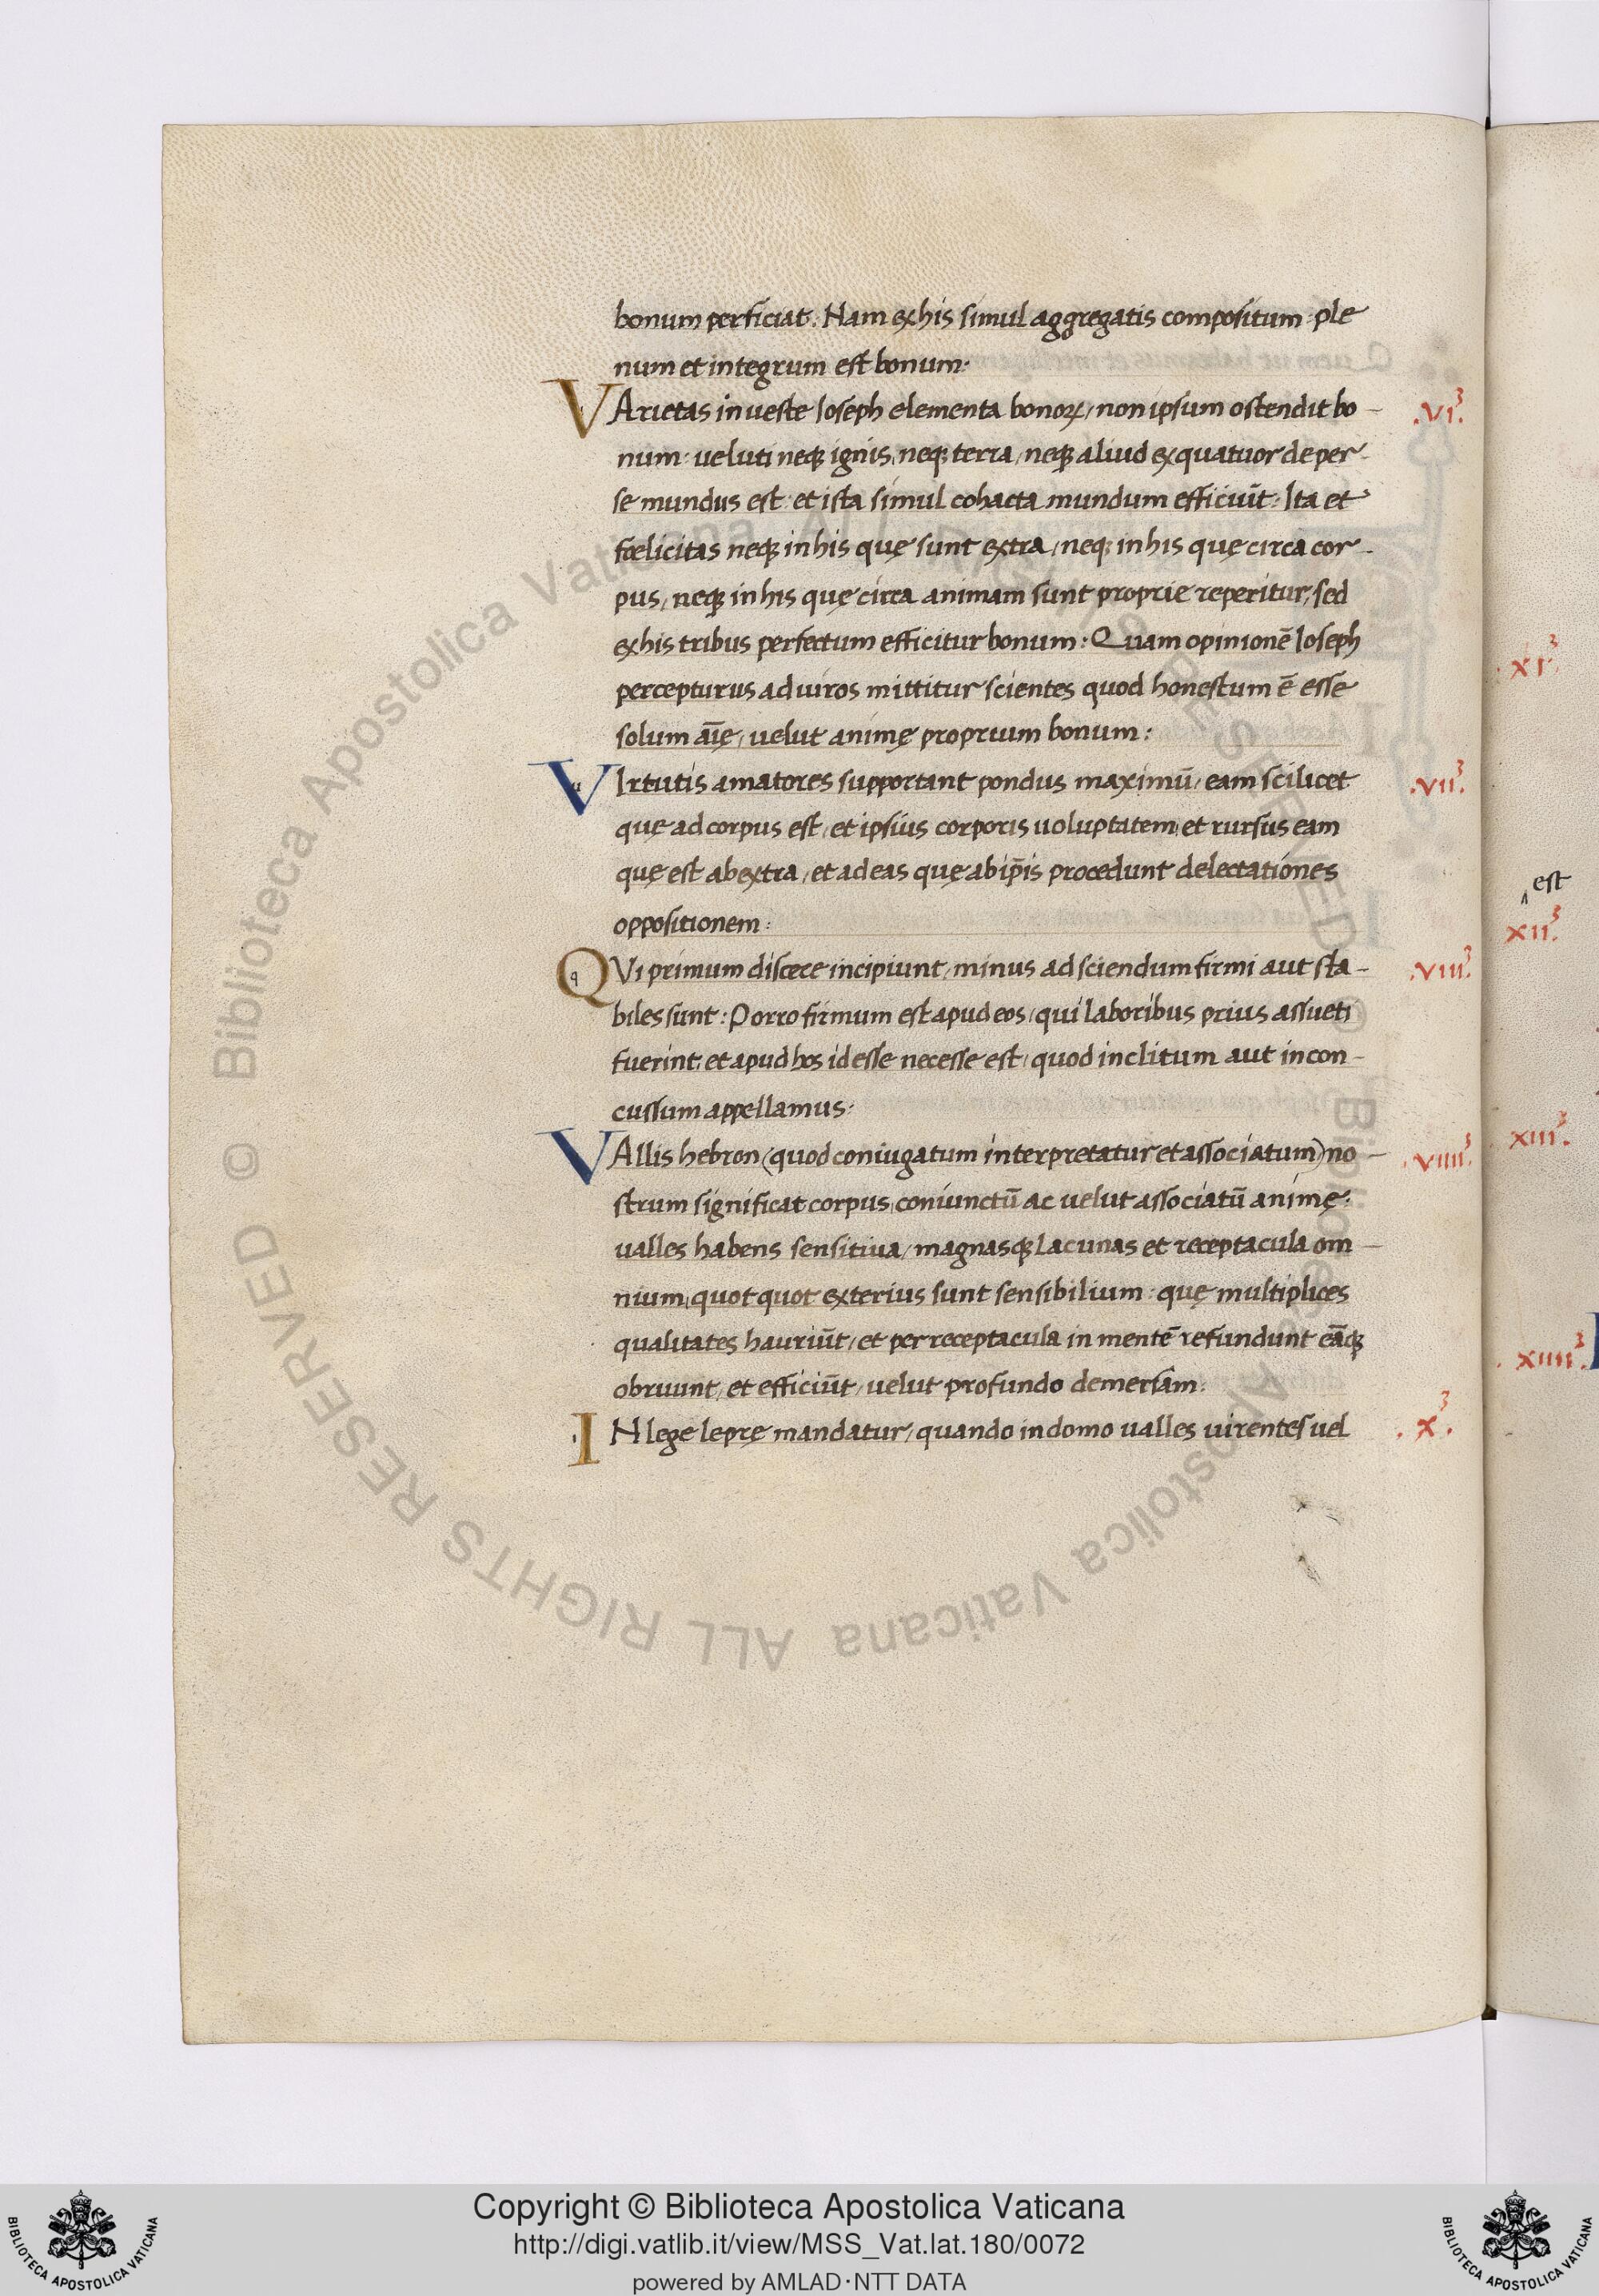 bonum perficiat. Nam ex his simul aggregatis compositum ple
num et integrum est bonum.
VArietas in ueste Ioseph elementa bonoꝝ, non ipsum ostendit bo- .VI.³
num: ueluti neqꝫ ignis, neqꝫ terra, neqꝫ aliud ex quatuor de per-
se mundus est: et ista simul cohacta mundum efficiūt: Ita et
fœlicitas neqꝫ in his quę sunt extra, neqꝫ in his quę circa cor-
pus, neqꝫ in his quę circa animam sunt proprie reperitur, sed
ex his tribus perfectum efficitur bonum: Quam opinionē Ioseph
percepturus ad uiros mittitur scientes quod honestum ē esse
solum aīę, uelut animę proprium bonum:
VIrtutis amatores supportant pondus maximū, eam scilicet .VII.³
quę ad corpus est, et ipsius corporis uoluptatem, et rursus eam
quę est ab extra, et ad eas quę ab ip̄is procedunt delectationes
oppositionem:
QVi primum discere incipiunt, minus ad sciendum firmi aut sta- .VIII.³
biles sunt: Porro firmum est apud eos, qui laboribus prius assueti
fuerint, et apud hos id esse necesse est, quod inclitum aut incon-
cussum appellamus:
VAllis hebron (quod coniugatum interpretatur et associatum) no- .VIIII.³
strum significat corpus, coniunctū ac uelut associatū animę:
ualles habens sensitiua, magnasqꝫ lacunas et receptacula om-
nium, quot quot exterius sunt sensibilium: quę multiplices
qualitates hauriūt, et per receptacula in mentē refundunt eāqꝫ
obruunt, et efficiūt, uelut profundo demersam:
IN lege leprę mandatur, quando in domo ualles uirentes uel .X.³
XI.³
est
XII.³
XIII.³
XIIII.³
© Biblioteca Apostolica Vaticana ALL RIGHTS RESERVED © Biblioteca Apostolica Vaticana ALL RIGHTS RESERVED
Copyright © Biblioteca Apostolica Vaticana
http://digi.vatlib.it/view/MSS_Vat.lat.180/0072
powered by AMLAD·NTT DATA
BIBLIOTECA APOSTOLICA VATICANA
BIBLIOTECA APOSTOLICA VATICANA